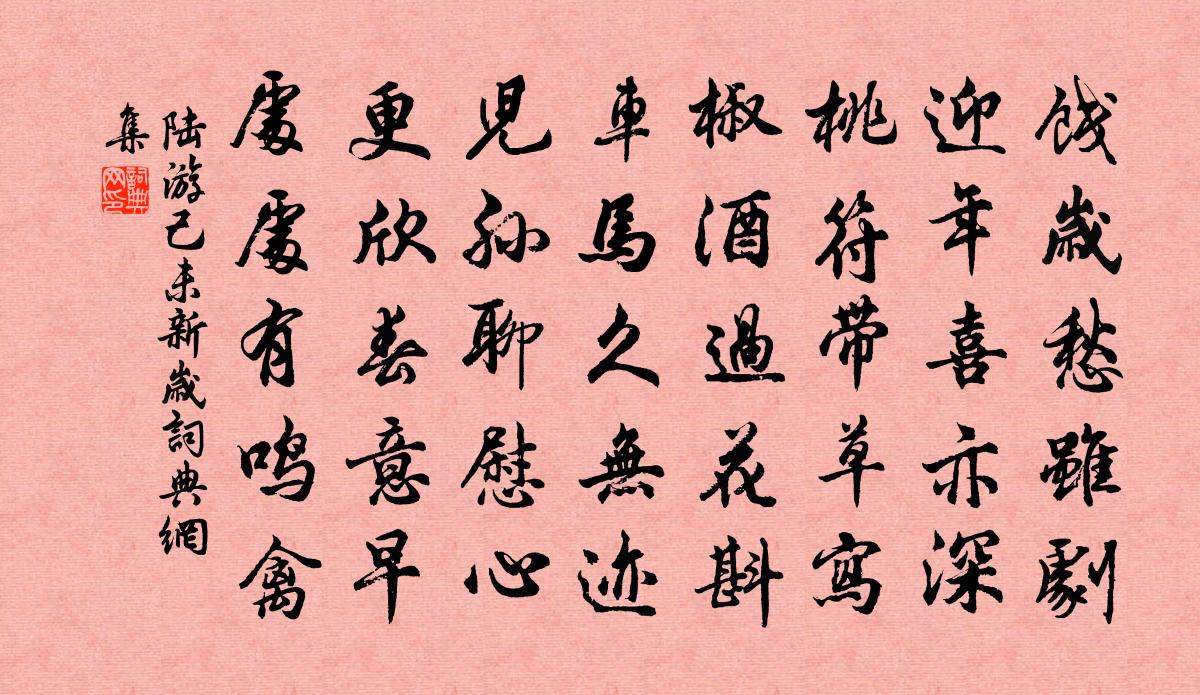 餞歲愁雖劇
迎年喜亦深
桃符帶草寫
椒酒過花斟
車馬久無迹
兒孫聊慰心
更欣春意早
處處有鳴禽
陸游己未新歲詞典網
集
詞典
网印